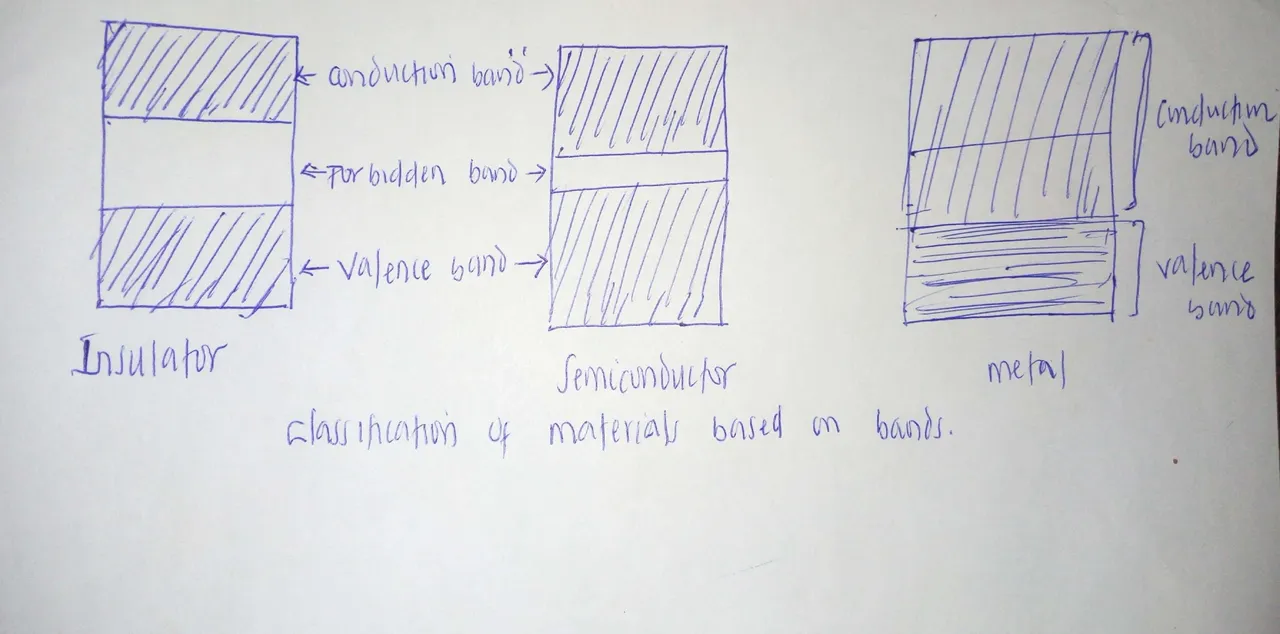 conduction band
conduction band
Forbidden band
valence band
valence band
Insulator
semiconductor
metal
classification of materials based on bands.